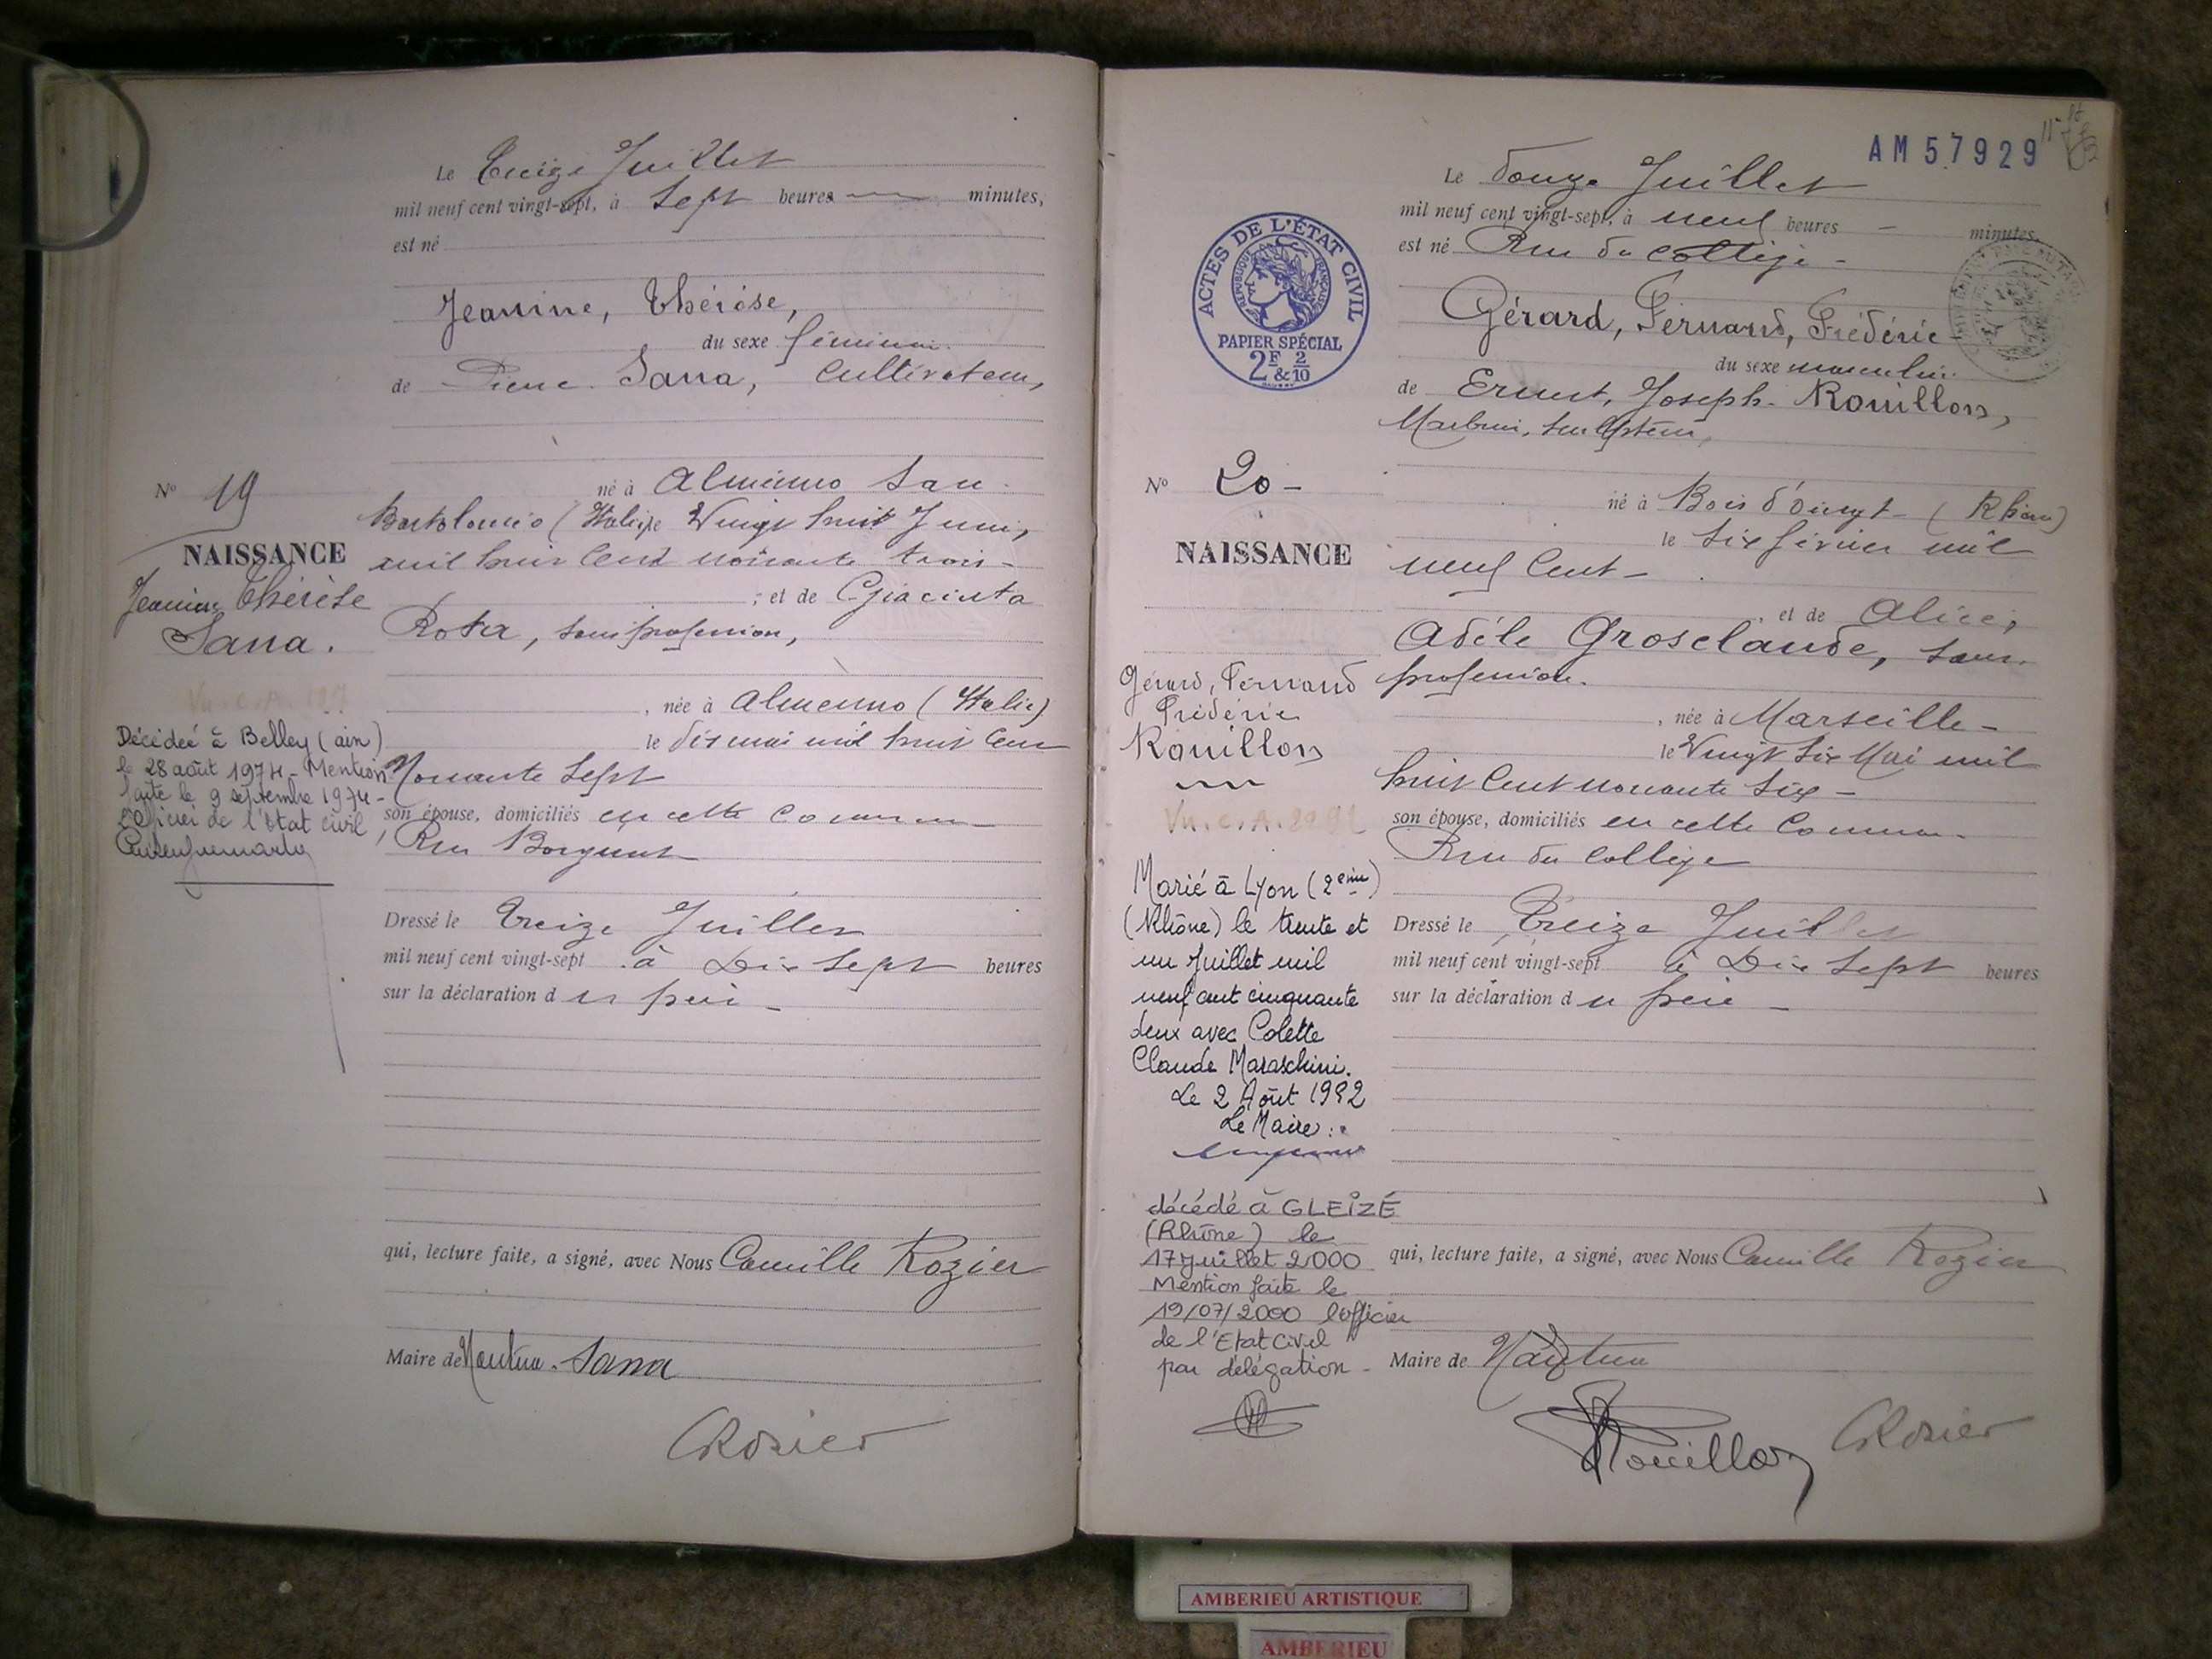 Le Treize Juillet
mil neuf cent vingt-sept, à Sept heures — minutes,
est né
Jeanine, Thérèse,
du sexe féminin.
de Pierre Sana, Cultivateur,
né à Almenno San
Bartolomeo (Italie) le Vingt huit Juin,
mil huit Cent nonante trois -
; et de Giacinta
Rota, sans profession,
, née à Almenno (Italie)
le dix mai mil huit Cent
Nonante Sept
son épouse, domiciliés en cette Commune
Rue
Dressé le Treize Juillet
mil neuf cent vingt-sept à Dix Sept heures
sur la déclaration du père -
qui, lecture faite, a signé, avec Nous Camille Rozier
Maire de Nantua. Sana
CRozier
N° 19
NAISSANCE
Jeanine Thérèse
Sana.
Décédée à Belley (ain)
le 28 août 1974 - Mention
faite le 9 septembre 1974 -
L'Officier de l'état civil,
AM 57929
Le Douze Juillet
mil neuf cent vingt-sept, à neuf heures - minutes,
est né Rue du Collège -
Gérard, Fernand, Frédéric
du sexe masculin.
de Ernest, Joseph Rouillon,
Marbrier, Sculpteur,
né à Bois d'Oingt (Rhône)
le Six février mil
neuf Cent -
, et de Alice,
Adèle Grosclaude, sans
profession.
, née à Marseille -
le Vingt Six Mai mil
huit Cent nonante Six -
son épouse, domiciliés en cette Commune -
Rue du Collège
Dressé le Treize Juillet
mil neuf cent vingt-sept à Dix Sept heures
sur la déclaration du père -
qui, lecture faite, a signé, avec Nous Camille Rozier
Maire de Nantua
Rouillon CRozier
ACTES DE L'ÉTAT CIVIL
RÉPUBLIQUE FRANÇAISE
PAPIER SPÉCIAL
2F & 2/10
N° 20 -
NAISSANCE
Gérard, Fernand
Frédéric
Rouillon
Marié à Lyon (2eme)
(Rhône) le trente et
un Juillet mil
neuf cent cinquante
deux avec Colette
Claude Maraschini.
Le 2 Août 1952
Le Maire :
décédé à GLEIZÉ
(Rhône) le
17 juillet 2000
Mention faite le
19/07/2000 l'officier
de l'Etat Civil
par délégation -
AMBERIEU ARTISTIQUE
AMBERIEU